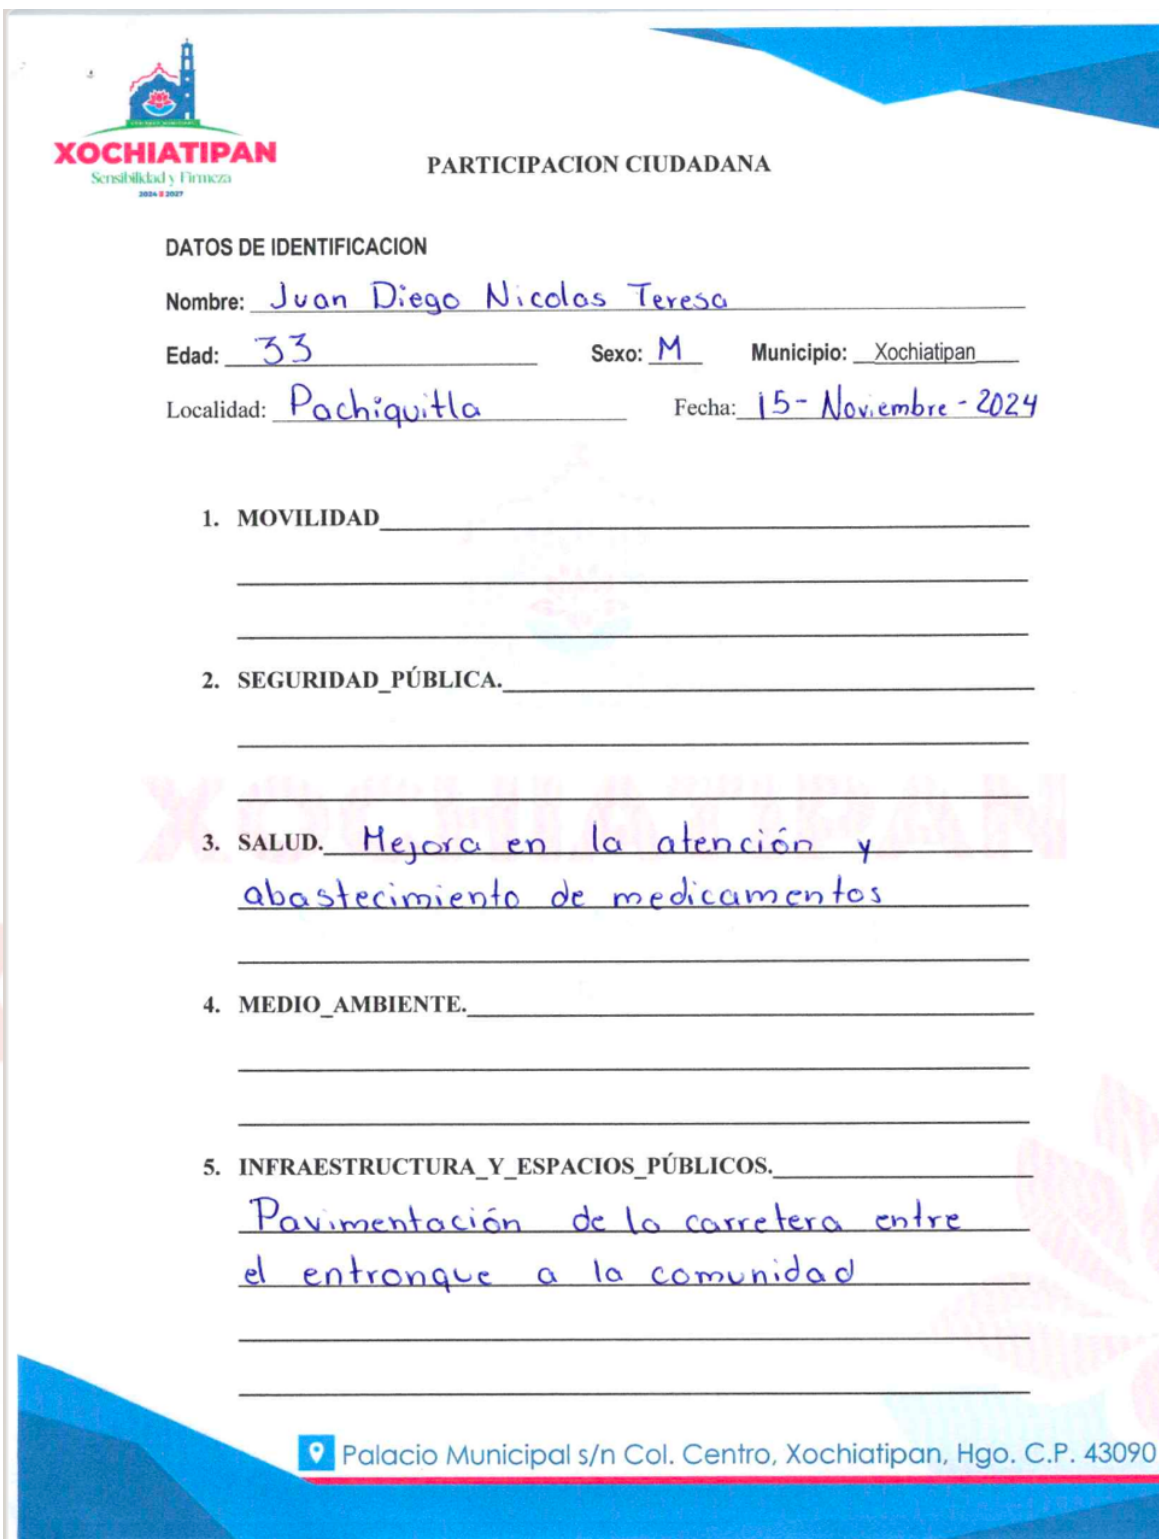 XOCHIATIPAN
Sensibilidad y Firmeza
2024 2027
PARTICIPACION CIUDADANA
DATOS DE IDENTIFICACION
Nombre: Juan Diego Nicolas Teresa
Edad: 33 Sexo: M Municipio: Xochiatipan
Localidad: Pachiquitla Fecha: 15- Noviembre - 2024
1. MOVILIDAD
2. SEGURIDAD_PÚBLICA.
XOCHIATIPAN
3. SALUD. Mejora en la atención y
abastecimiento de medicamentos
4. MEDIO_AMBIENTE.
5. INFRAESTRUCTURA_Y_ESPACIOS_PÚBLICOS.
Pavimentación de la carretera entre
el entronque a la comunidad
Palacio Municipal s/n Col. Centro, Xochiatipan, Hgo. C.P. 43090